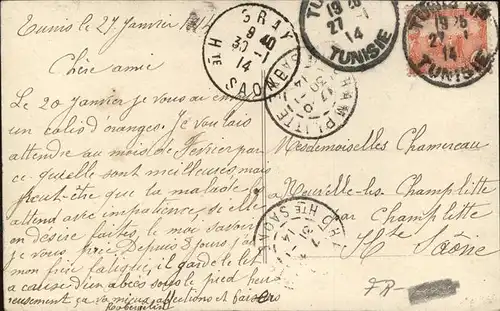 Tunis le 27 Janvier 1914
Chère amie
Le 20 Janvier je vous ai envoyé
un colis d'oranges. Je voulais
attendre au mois de Février parce
ce qu'elle sont meilleures, mais
peut-être que la malade
attend avec impatience, si elle
en désire faites, le moi savoir
je vous prie Depuis 8 jours j'ai
mon frère fatigué, il garde le lit
a cause d'un abcès sous le pied heu
reusement ça va mieux affections et baisers
Mesdemoiselles Chamereau
Neuvelle-les-Champlitte
par Champlitte
Hte Saône
FR-
GRAY
9 40
30 -1
14
HTE SAONE
TUNISIE
27 -1
14
TUNIS
19 25
27 -1
14
TUNISIE
CHAMPLITTE
30
14
HTE SAONE
31
14